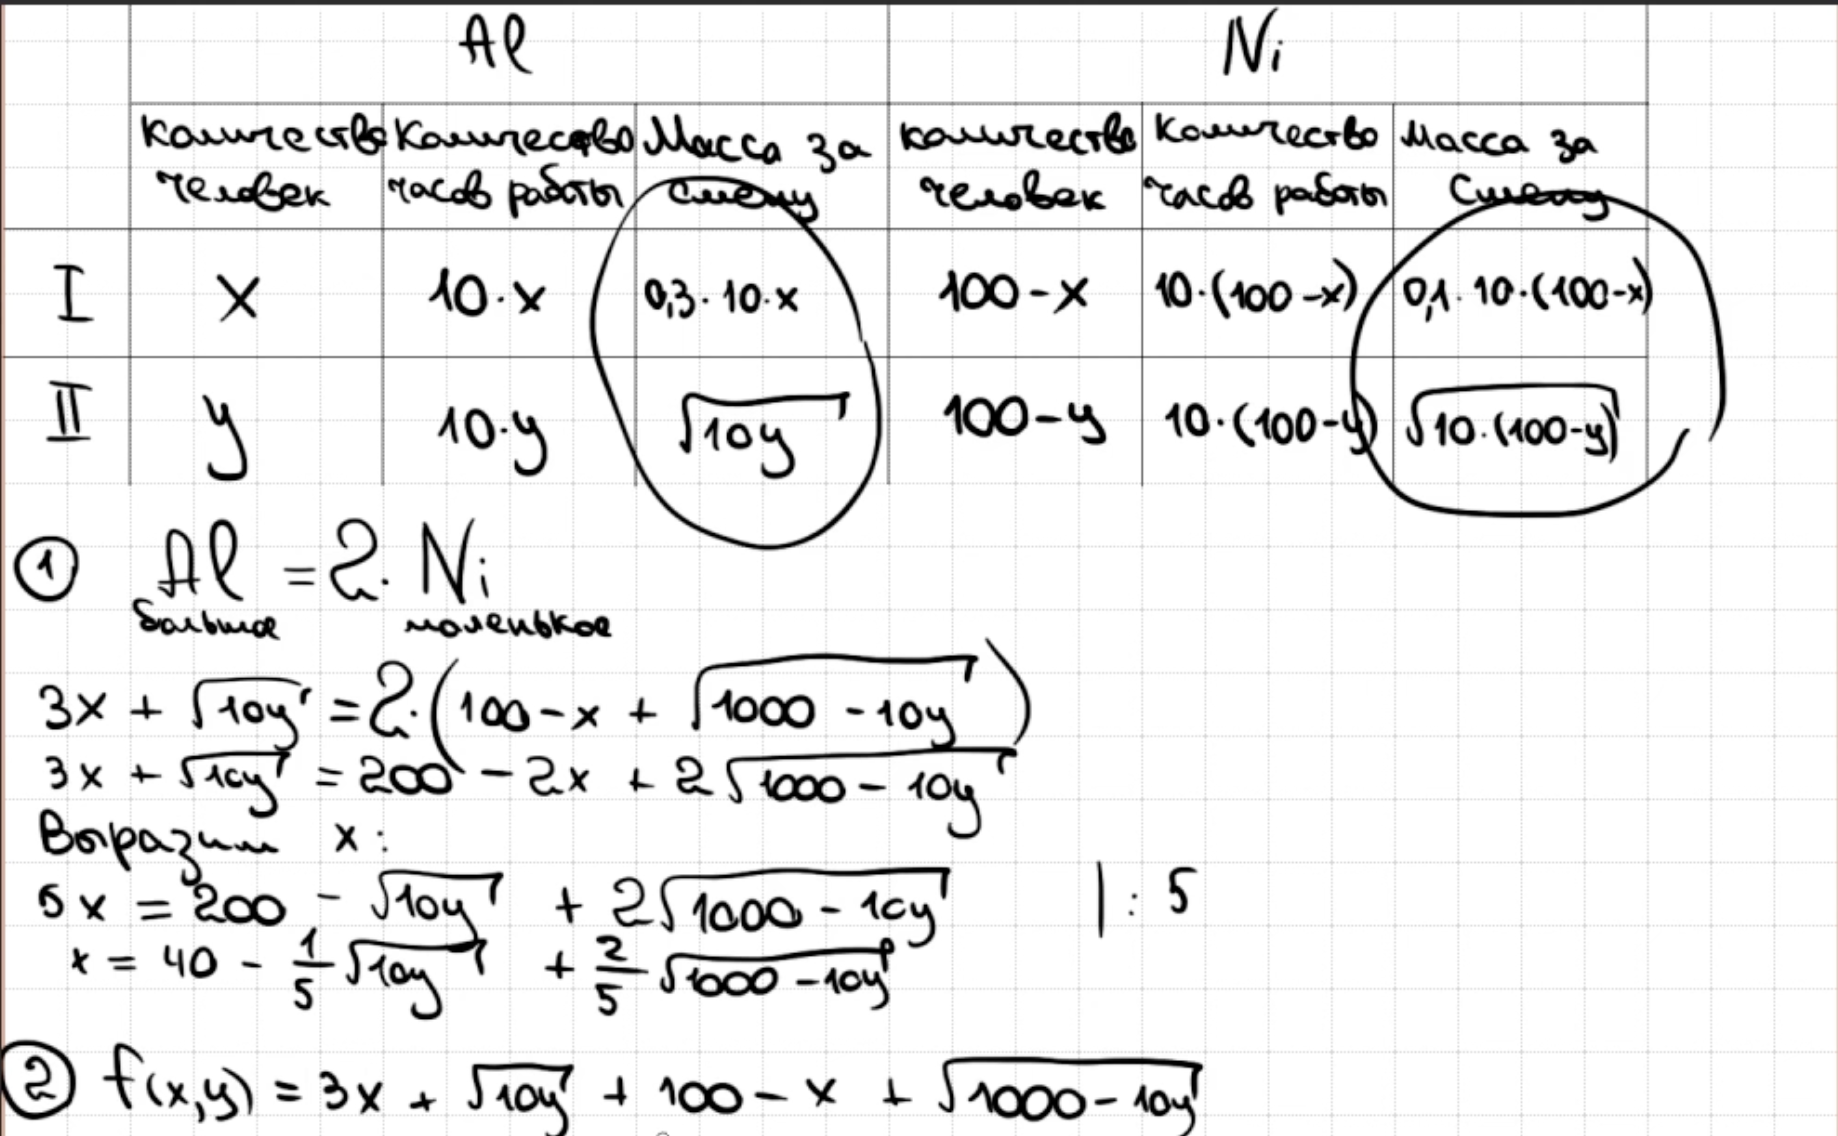 Al Ni
количество человек количество часов работы Масса за смену количество человек количество часов работы Масса за смену
I x 10·x 0,3·10·x 100-x 10·(100-x) 0,1·10·(100-x)
II y 10·y √10y 100-y 10·(100-y) √10·(100-y)
① Al = 2· Ni
большое маленькое
3x + √10y = 2·(100-x + √1000-10y)
3x + √10y = 200 - 2x + 2√1000-10y
Выразим x:
5x = 200 - √10y + 2√1000-10y |:5
x = 40 - 1/5√10y + 2/5√1000-10y
② f(x,y) = 3x + √10y + 100-x + √1000-10y